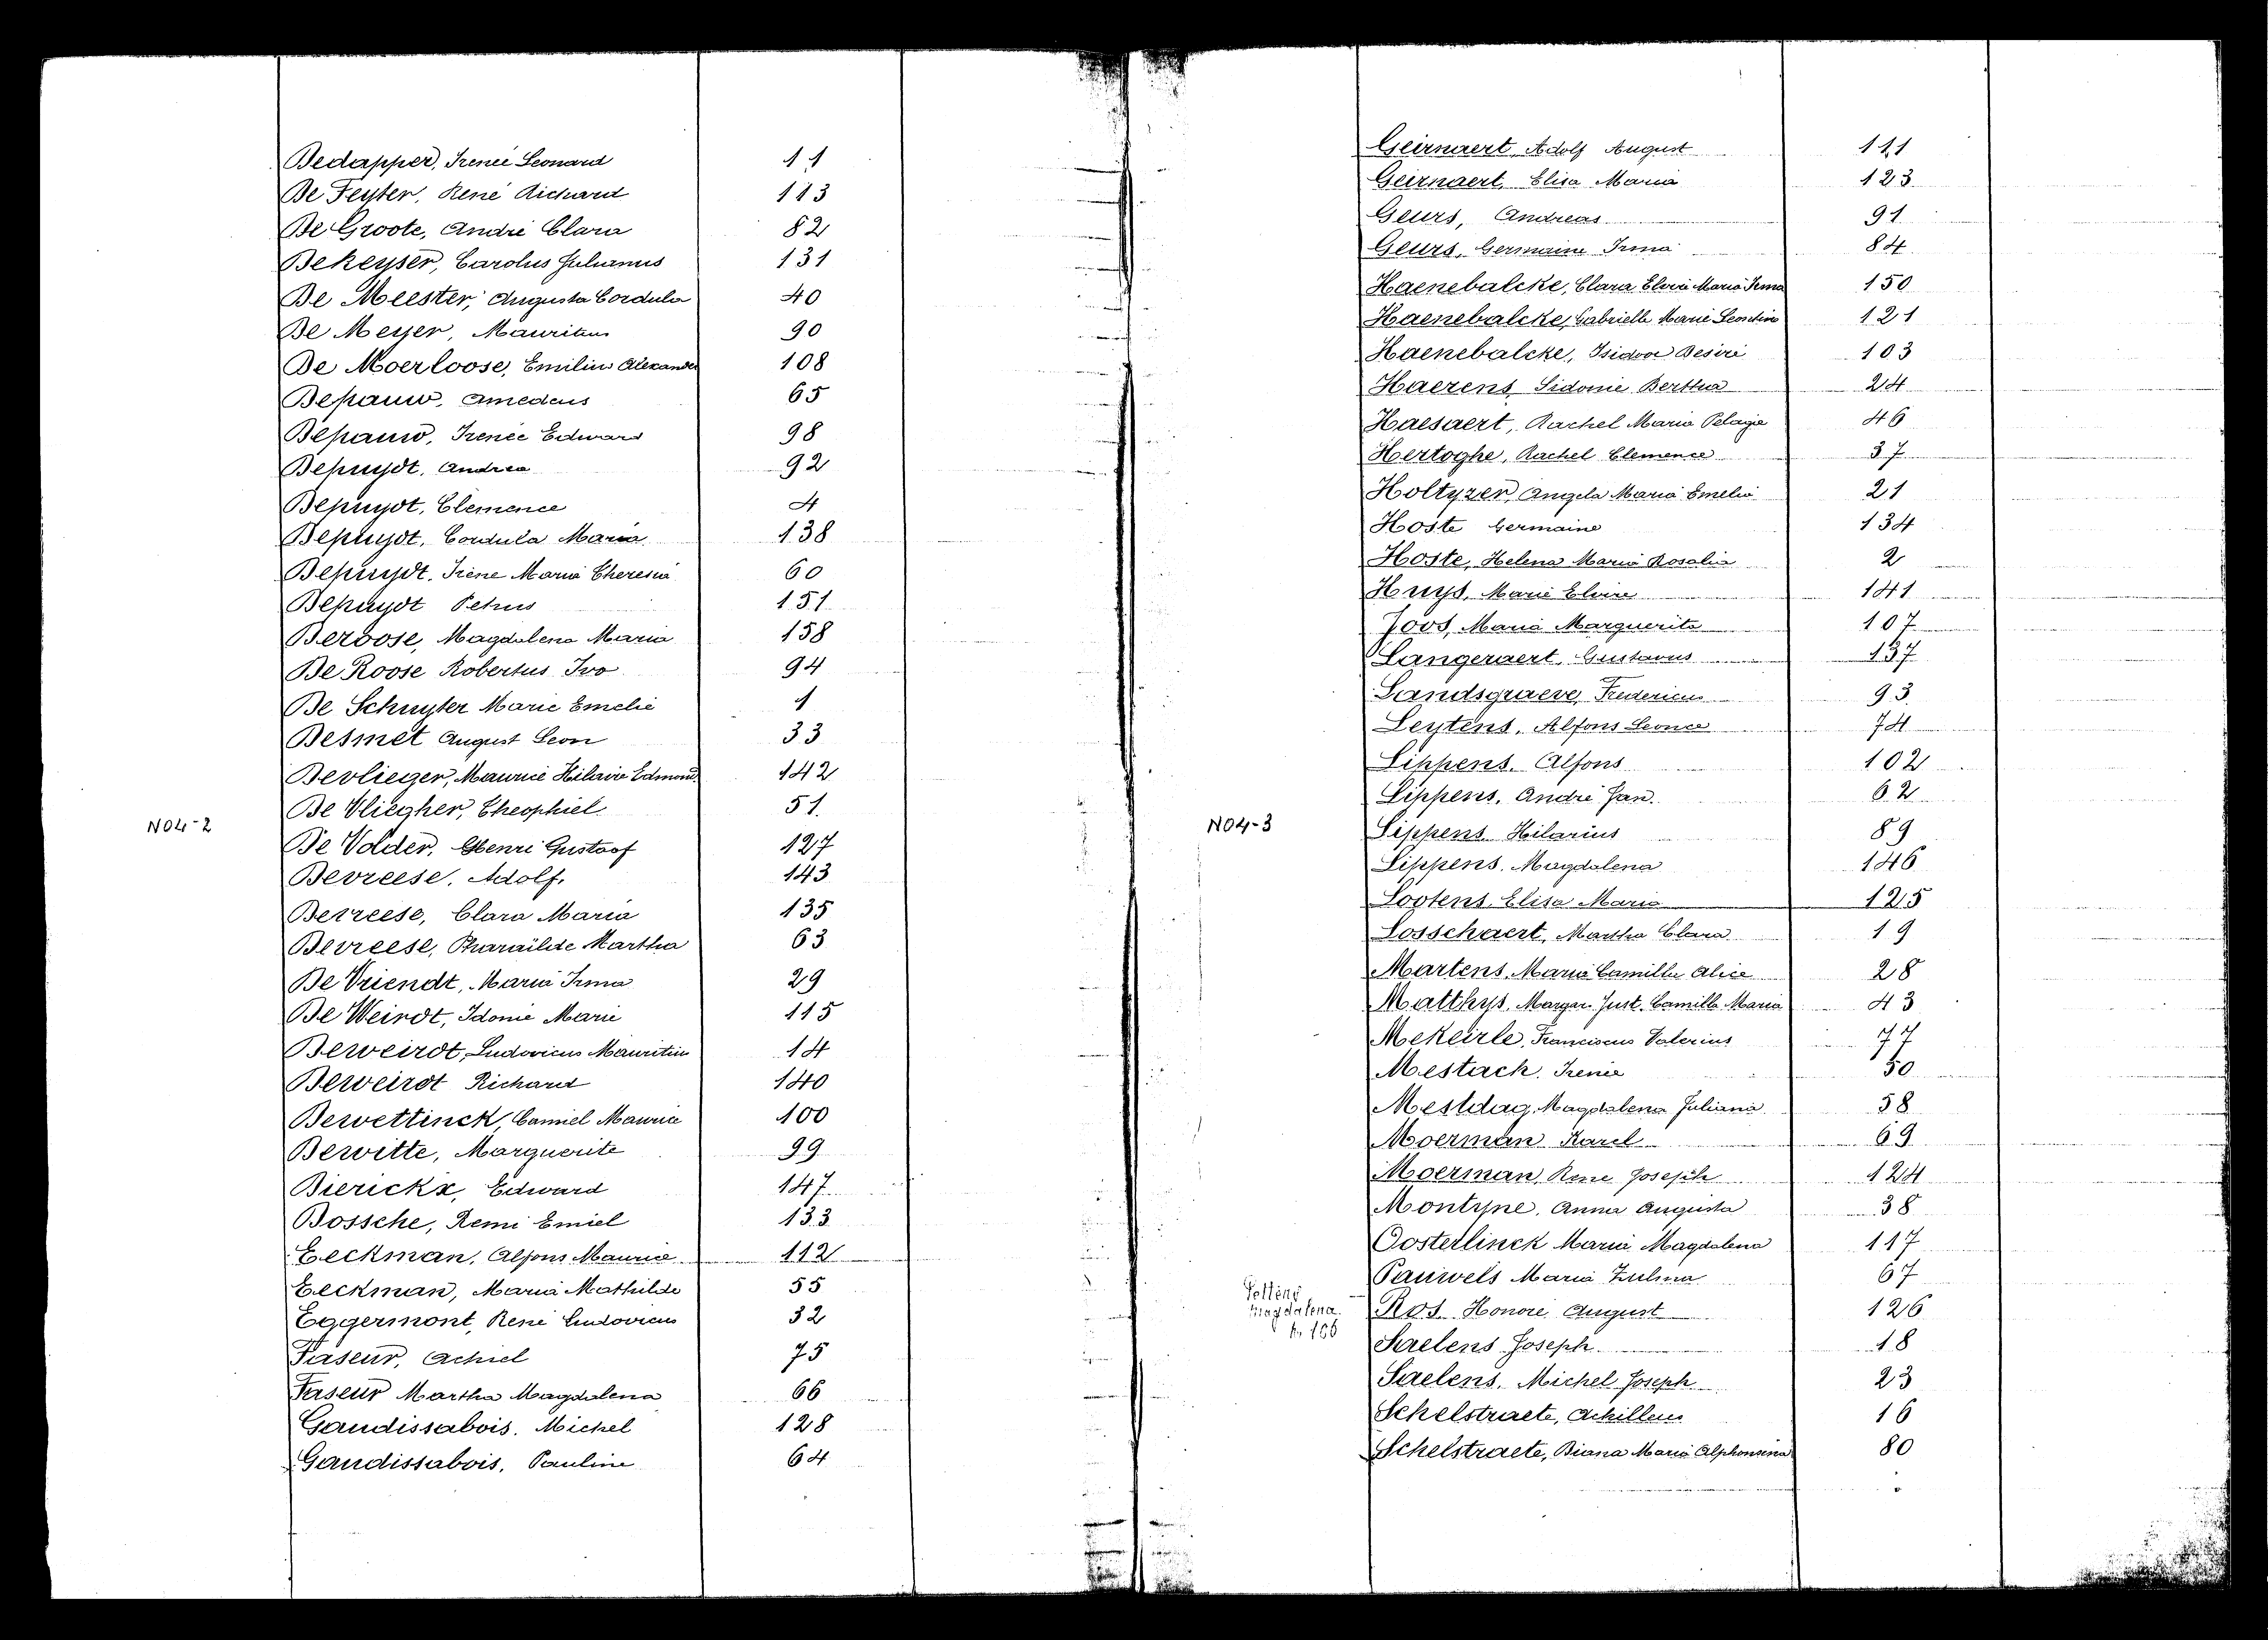 Dedapper, Irenée Leonard 11
De Feyter, René Richard 113
De Groote, André Clara 82
Dekeyser, Carolus Julianus 131
De Meester, Augusta Cordula 40
De Meyer, Mauritius 90
De Moerloose, Emilius Alexander 108
Depauw, Amedeus 65
Depauw, Irenée Edward 98
Depuydt, Andrea 92
Depuydt, Clemence 4
Depuydt, Cordula Maria 138
Depuydt, Irène Maria Theresia 60
Depuydt Petrus 151
Deroose, Magdalena Maria 158
De Roose Robertus Ivo 94
De Schuyter Marie Emelie 1
Desmet August Leon 33
Devlieger, Maurice Hilaire Edmond 142
De Vliegher, Theophiel 51
N04-2
De Volder, Henri Gustaaf 127
Devreese, Adolf. 143
Devreese, Clara Maria 135
Devreese, Pharaïlde Martha 63
De Vriendt, Maria Irma 29
De Weirdt, Idonie Marie 115
Deweirdt, Ludovicus Mauritius 14
Deweirdt Richard 140
Dewettinck, Camiel Maurice 100
Dewitte, Marguerite 99
Dierickx, Edward 147
Dossche, Remi Emiel 133
Eeckman, Alfons Maurice 112
Eeckman, Maria Mathilde 55
Eggermont, René Ludovicus 32
Faseur, Achiel 75
Faseur Martha Magdalena 66
Gaudissabois, Michel 128
Gaudissabois, Pauline 64
Geirnaert, Adolf August 111
Geirnaert, Elisa Maria 123
Geurs, Andreas 91
Geurs, Germaine Irma 84
Haenebalcke, Clara Elvira Maria Irma 150
Haenebalcke, Gabrielle Marie Leontine 121
Haenebalcke, Isidoor Desiré 103
Haerens, Sidonie Bertha 24
Haesaert, Rachel Maria Pelagie 46
Hertoghe, Rachel Clemence 37
Holtyzer, Angela Maria Emelia 21
Hoste Germaine 134
Hoste, Helena Maria Rosalia 2
Huys, Marie Elvire 141
Joos, Maria Marguerita 107
Langeraert, Gustavus 137
Landsgraeve, Fredericus 93
Leytens, Alfons Leonce 74
Lippens, Alfons 102
Lippens, André Jan. 62
N04-3
Lippens Hilarius 89
Lippens, Magdalena 146
Lootens, Elisa Maria 125
Losschaert, Martha Clara 19
Martens, Maria Camilla Alice 28
Matthys, Margar. Just. Camilla Maria 43
Mekeirle, Franciscus Valerius 77
Mestach, Irenie 50
Mestdag, Magdalena Juliana 58
Moerman Karel 69
Moerman, René Joseph 124
Montyne, Anna Augusta 38
Oosterlinck Maria Magdalena 117
Pauwels Maria Zulma 67
Magdalena
Ros Honoré August 126
Saelens Joseph 18
Saelens, Michel Joseph 23
Schelstraete, Achilleus 16
Schelstraete, Diana Maria Alphonsina 80